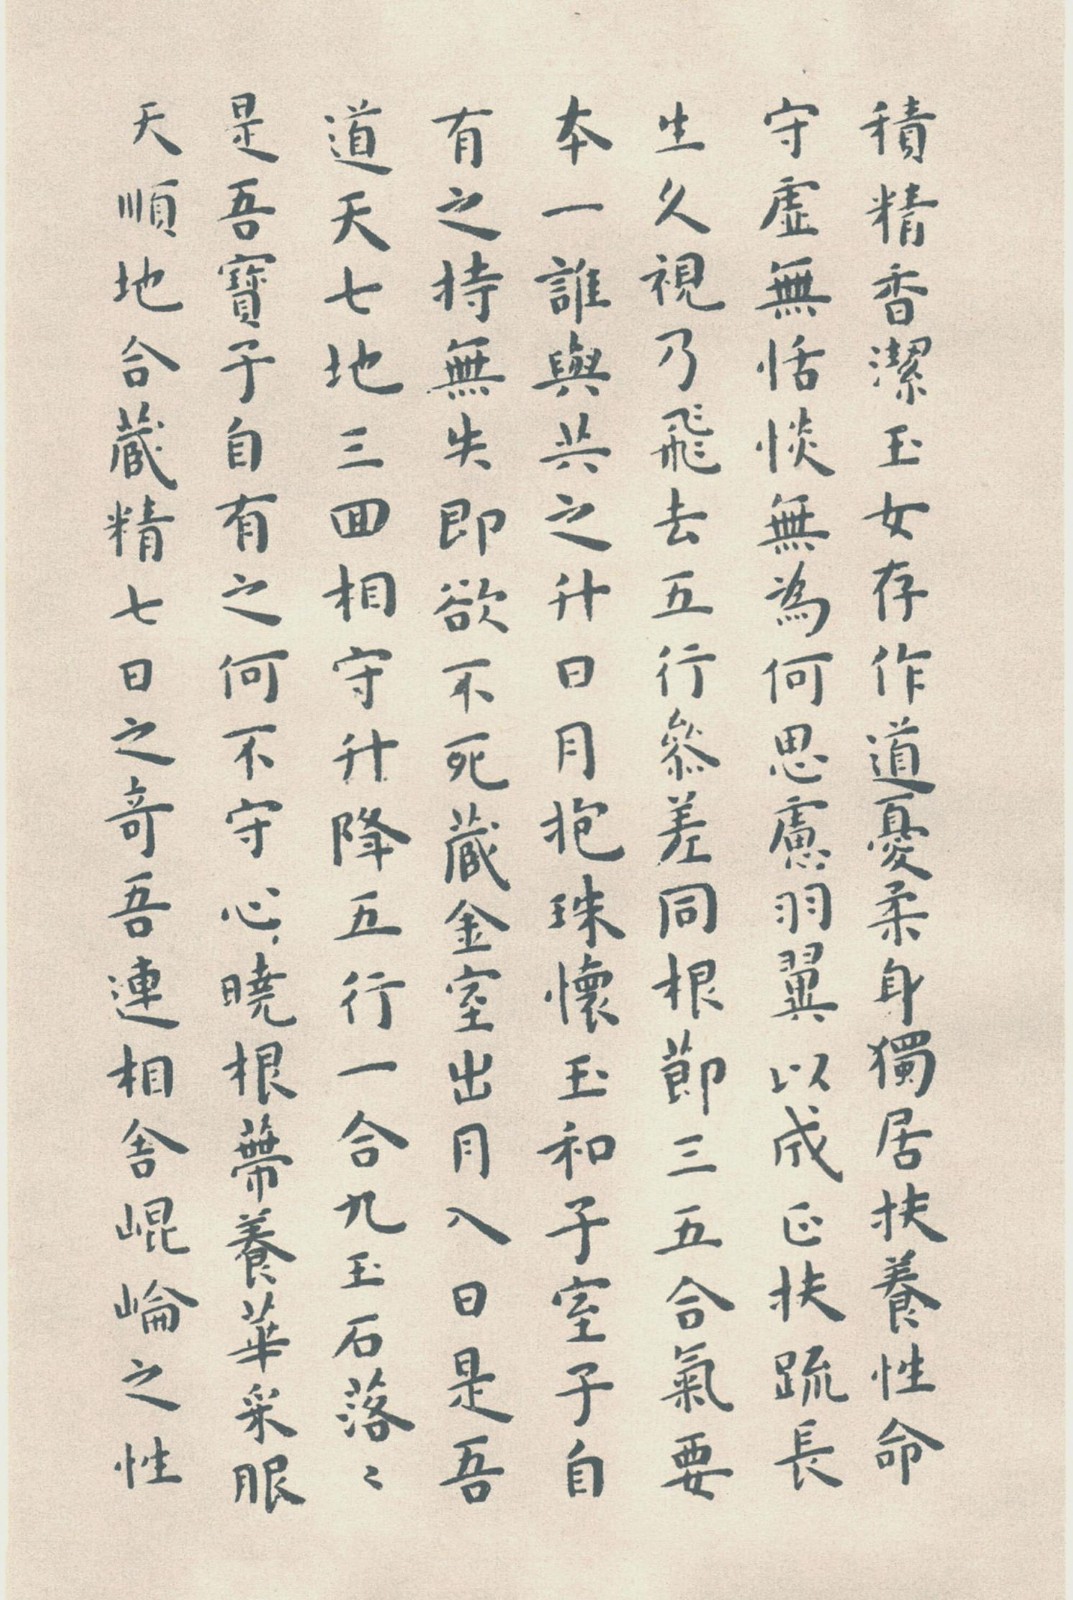 積精香潔玉女存作道憂柔身獨居扶養性命
守虛無恬惔無為何思慮羽翼以成正扶疏長
生久視乃飛去五行參差同根節三五合氣要
本一誰與共之升日月抱珠懷玉和子室子自
有之持無失即欲不死藏金室出月入日是吾
道天七地三回相守升降五行一合九玉石落〻
是吾寶子自有之何不守心曉根蔕養華采服
天順地合藏精七日之奇吾連相舍崐崘之性